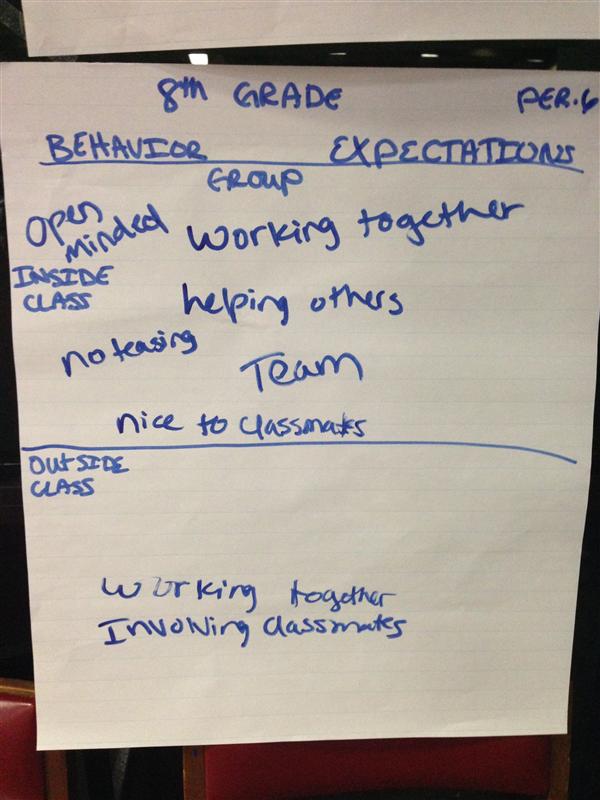 8th GRADE PER.6
BEHAVIOR EXPECTATIONS
GROUP
Open
Minded
Working together
INSIDE
CLASS
helping others
no teasing
Team
nice to classmates
OUTSIDE
CLASS
Working together
Involving classmates